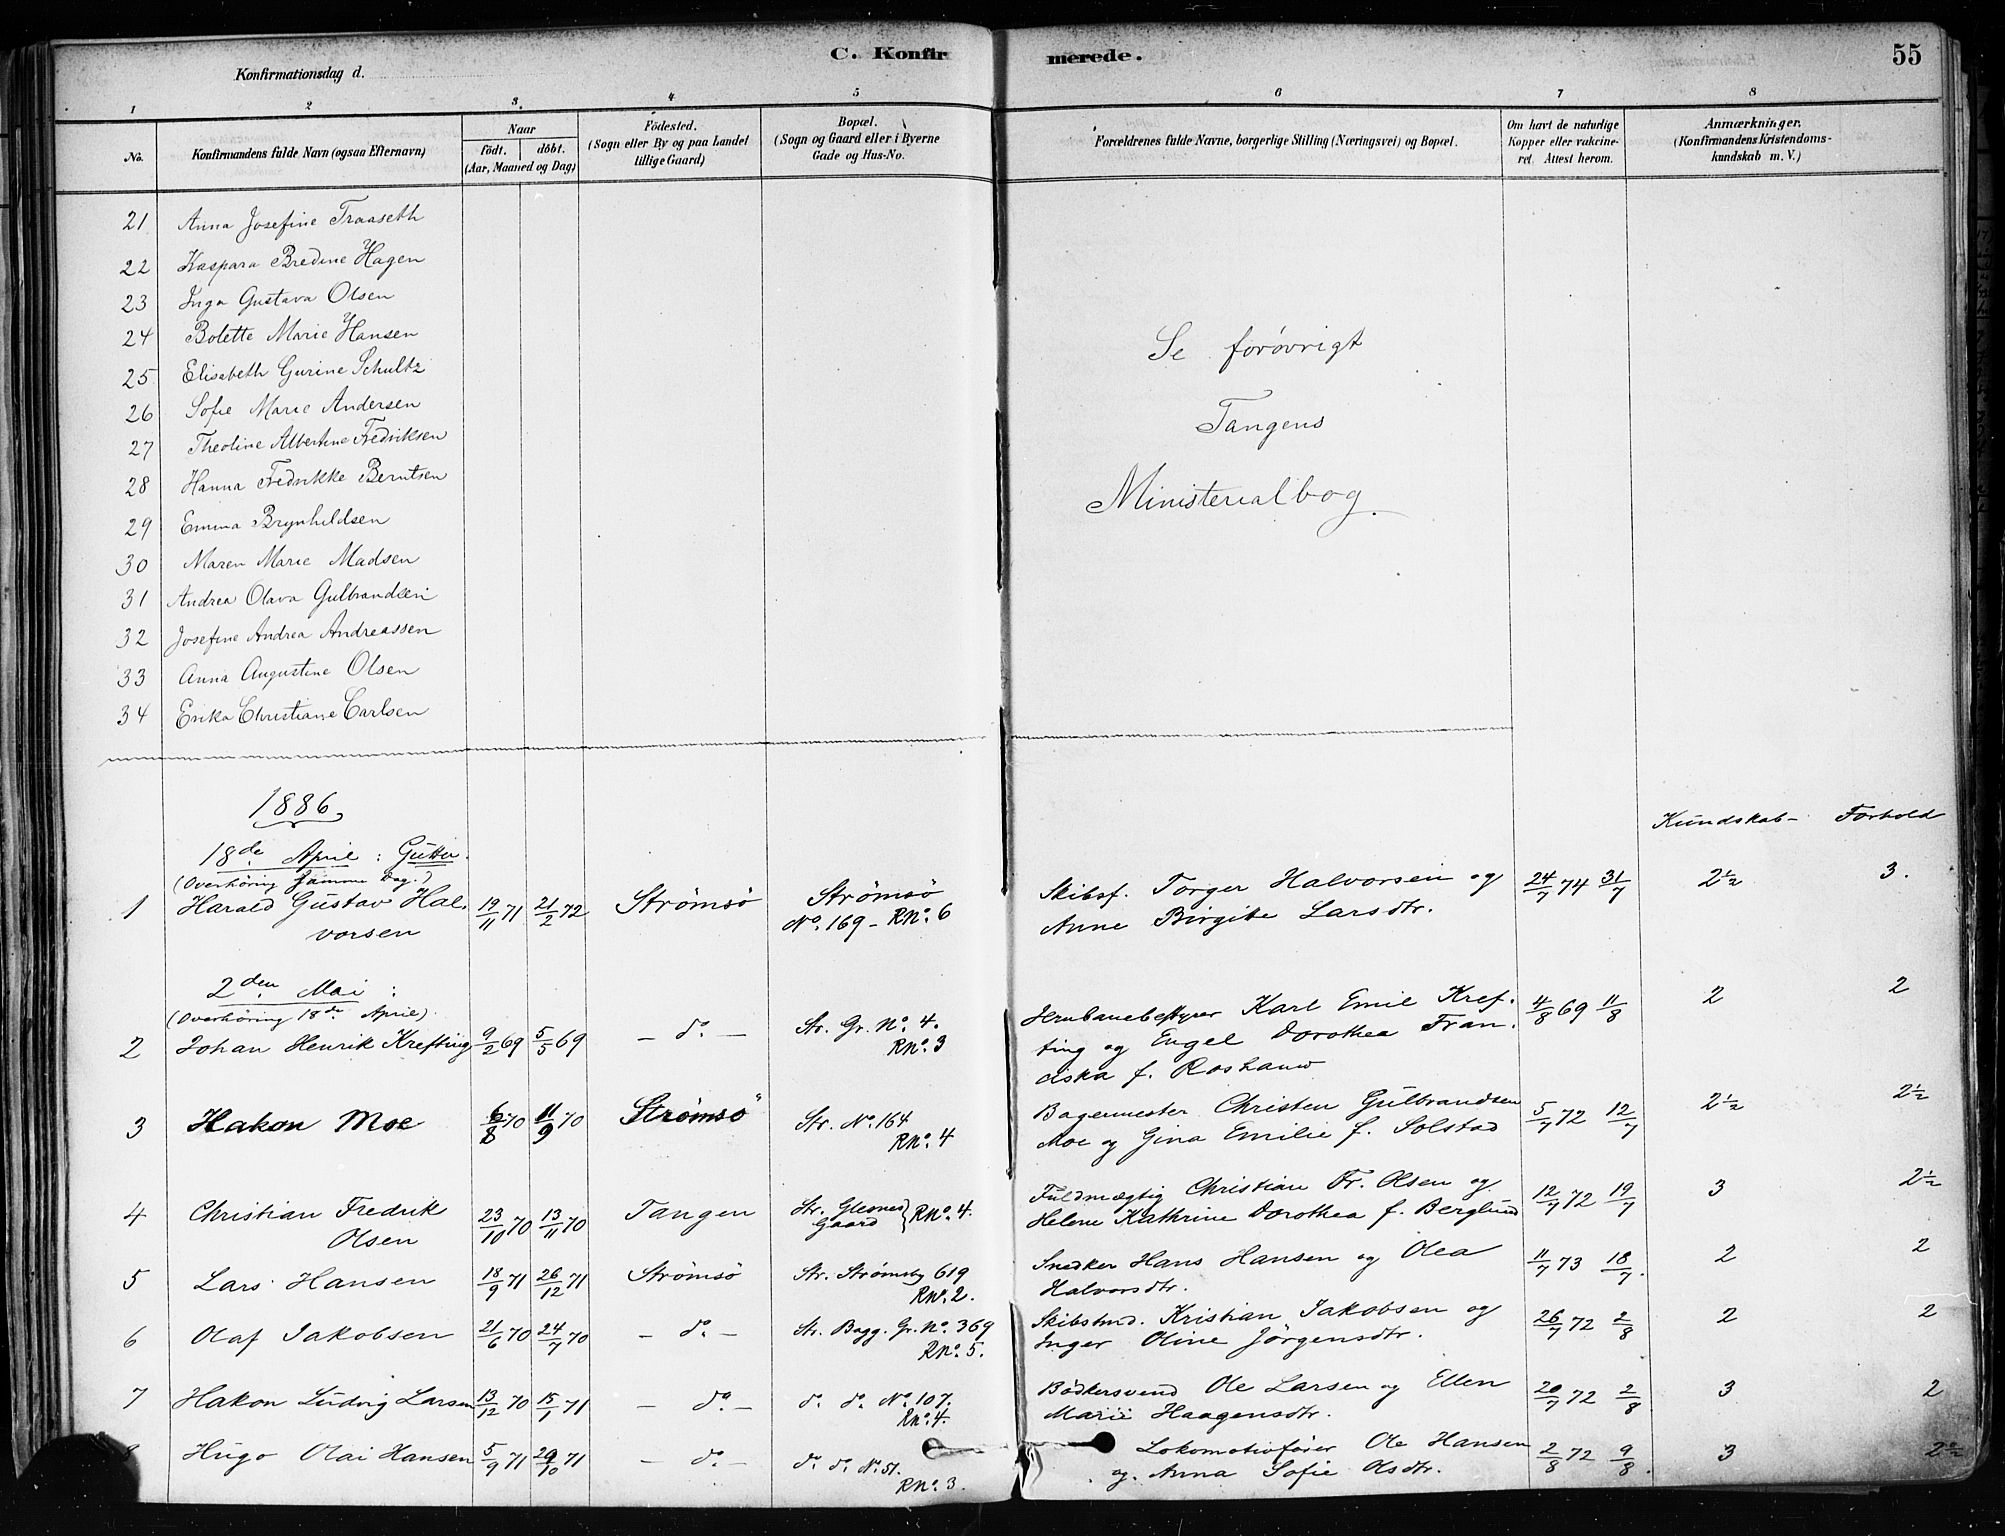 C. Konfirmerede.
55
Konfirmationsdag d.
1 2 3. 4 5 6 7 8
No. Konfirmandens fulde Navn (ogsaa Efternavn) Naar født. døbt. (Aar, Maaned og Dag) Fødested. (Sogn eller By og paa Landet tillige Gaard) Bopæl. (Sogn og Gaard eller i Byerne Gade og Hus-No. Forældrenes fulde Navne, borgerlige Stilling (Næringsvei) og Bopæl. Om havt de naturlige Kopper eller vaccineret. Attest herom. Anmærkninger. (Konfirmandens Kristendomskundskab m. V.)
21 Anna Josefine Traaseth
22 Kaspara Bredine Hagen
23 Inga Gustava Olsen
24 Bolette Marie Hansen
25 Elisabeth Gurine Schultz
26 Sofie Marie Andersen
27 Theoline Albertine Fredriksen
28 Hanna Fredrikke Berntsen
29 Emma Brynhildsen
30 Maren Marie Madsen
31 Andrea Olava Gulbrandsen
32 Josefine Andrea Andreassen
33 Anna Augustine Olsen
34 Erika Christiane Carlsen
Se forøvrigt
Tangens
Ministerialbog.
1886.
Kundskab- Forhold
18de April: Gutter.
(Overhöring samme Dag.)
1 Harald Gustav Halvorsen 19/11 71 21/2 72 Strömsö Strömsö No. 169 - RNo. 6 Skibsf. Torger Halvorsen og Anne Birgite Larsdtr. 24/7 74 31/7 2½ 3.
2den Mai:
(Overhöring 18de April).
2 Johan Henrik Krefting 9/2 69 5/5 69 - do. - Str. Gr. No. 4. RNo. 3 Jernbanebestyrer Karl Emil Krefting og Engel Dorothea Franciska f. Roshauw 4/8 69 11/8 2 2
3 Hakon Moe 6/8 70 11/9 70 Strömsö Str. No. 164 RNo. 4 Bagermester Christen Gulbrandsen Moe og Gina Emilie f. Solstad 5/7 72 12/7 2½ 2½
4 Christian Fredrik Olsen 23/10 70 13/11 70 Tangen Str. Glesnes Gaard RNo. 4. Fuldmægtig Christian Fr. Olsen og Helene Kathrine Dorothea f. Berglund 12/7 72 19/7 3 2½
5 Lars Hansen 18/9 71 26/12 71 Strömsö Str. Strömsby 619 RNo. 2. Snedker Hans Hansen og Olea Halvorsdtr. 11/7 73 18/7. 2 2
6 Olaf Jakobsen 21/6 70 24/7 70 - do. - Str. Bagg. Gr. No. 369 RNo. 5. Skibstmd. Kristian Jakobsen og Inger Oline Jörgensdtr. 26/7 72 2/8 2 2
7 Hakon Ludvig Larsen 13/12 70 15/1 71 - do. - do. do. No. 107. RNo. 4. Bödkersvend Ole Larsen og Ellen Marie Haagensdtr. 20/7 72 2/8 3 2
8 Hugo Olai Hansen 5/9 71 29/10 71 - do. - do. do. No. 51. RNo. 3. Lokomotivfører Ole Hansen og Anna Sofie Olsdtr. 2/8 72 9/8. 3 2½